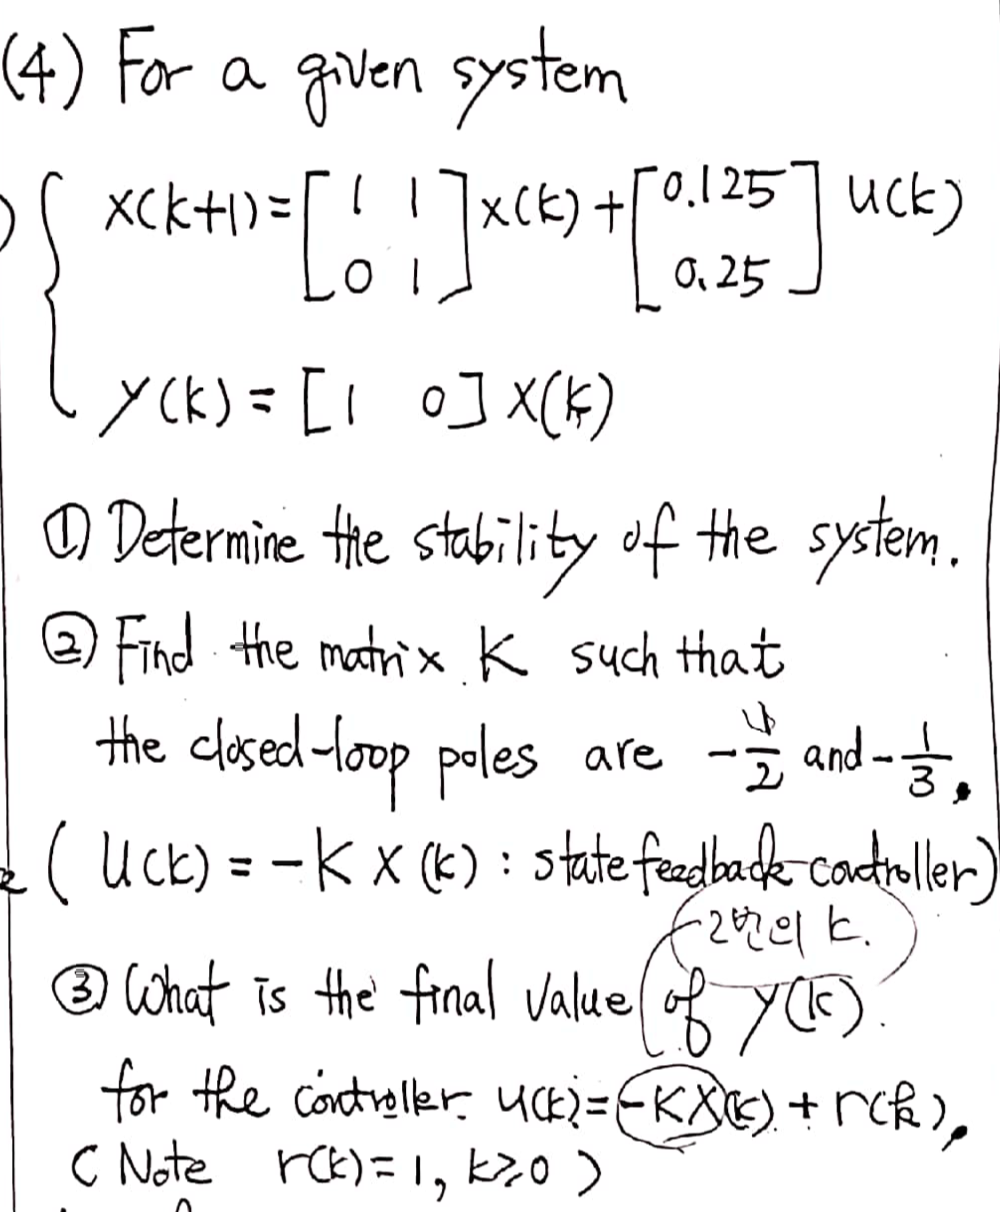 (4) For a given system
x(k+1)=[1 1; 0 1]x(k)+[0.125; 0.25]u(k)
y(k)=[1 0]x(k)
① Determine the stability of the system.
② Find the matrix K such that
the closed-loop poles are and -1/3.
(u(k)=-Kx(k): state feedback controller)
2번의 k.
③ What is the final value of y(k).
for the controller u(k)=-Kx(k)+r(k).
(Note r(k)=1, k≥0)